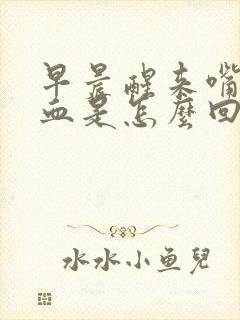 早晨醒来嘴
血是怎麼回
水水小鱼兒